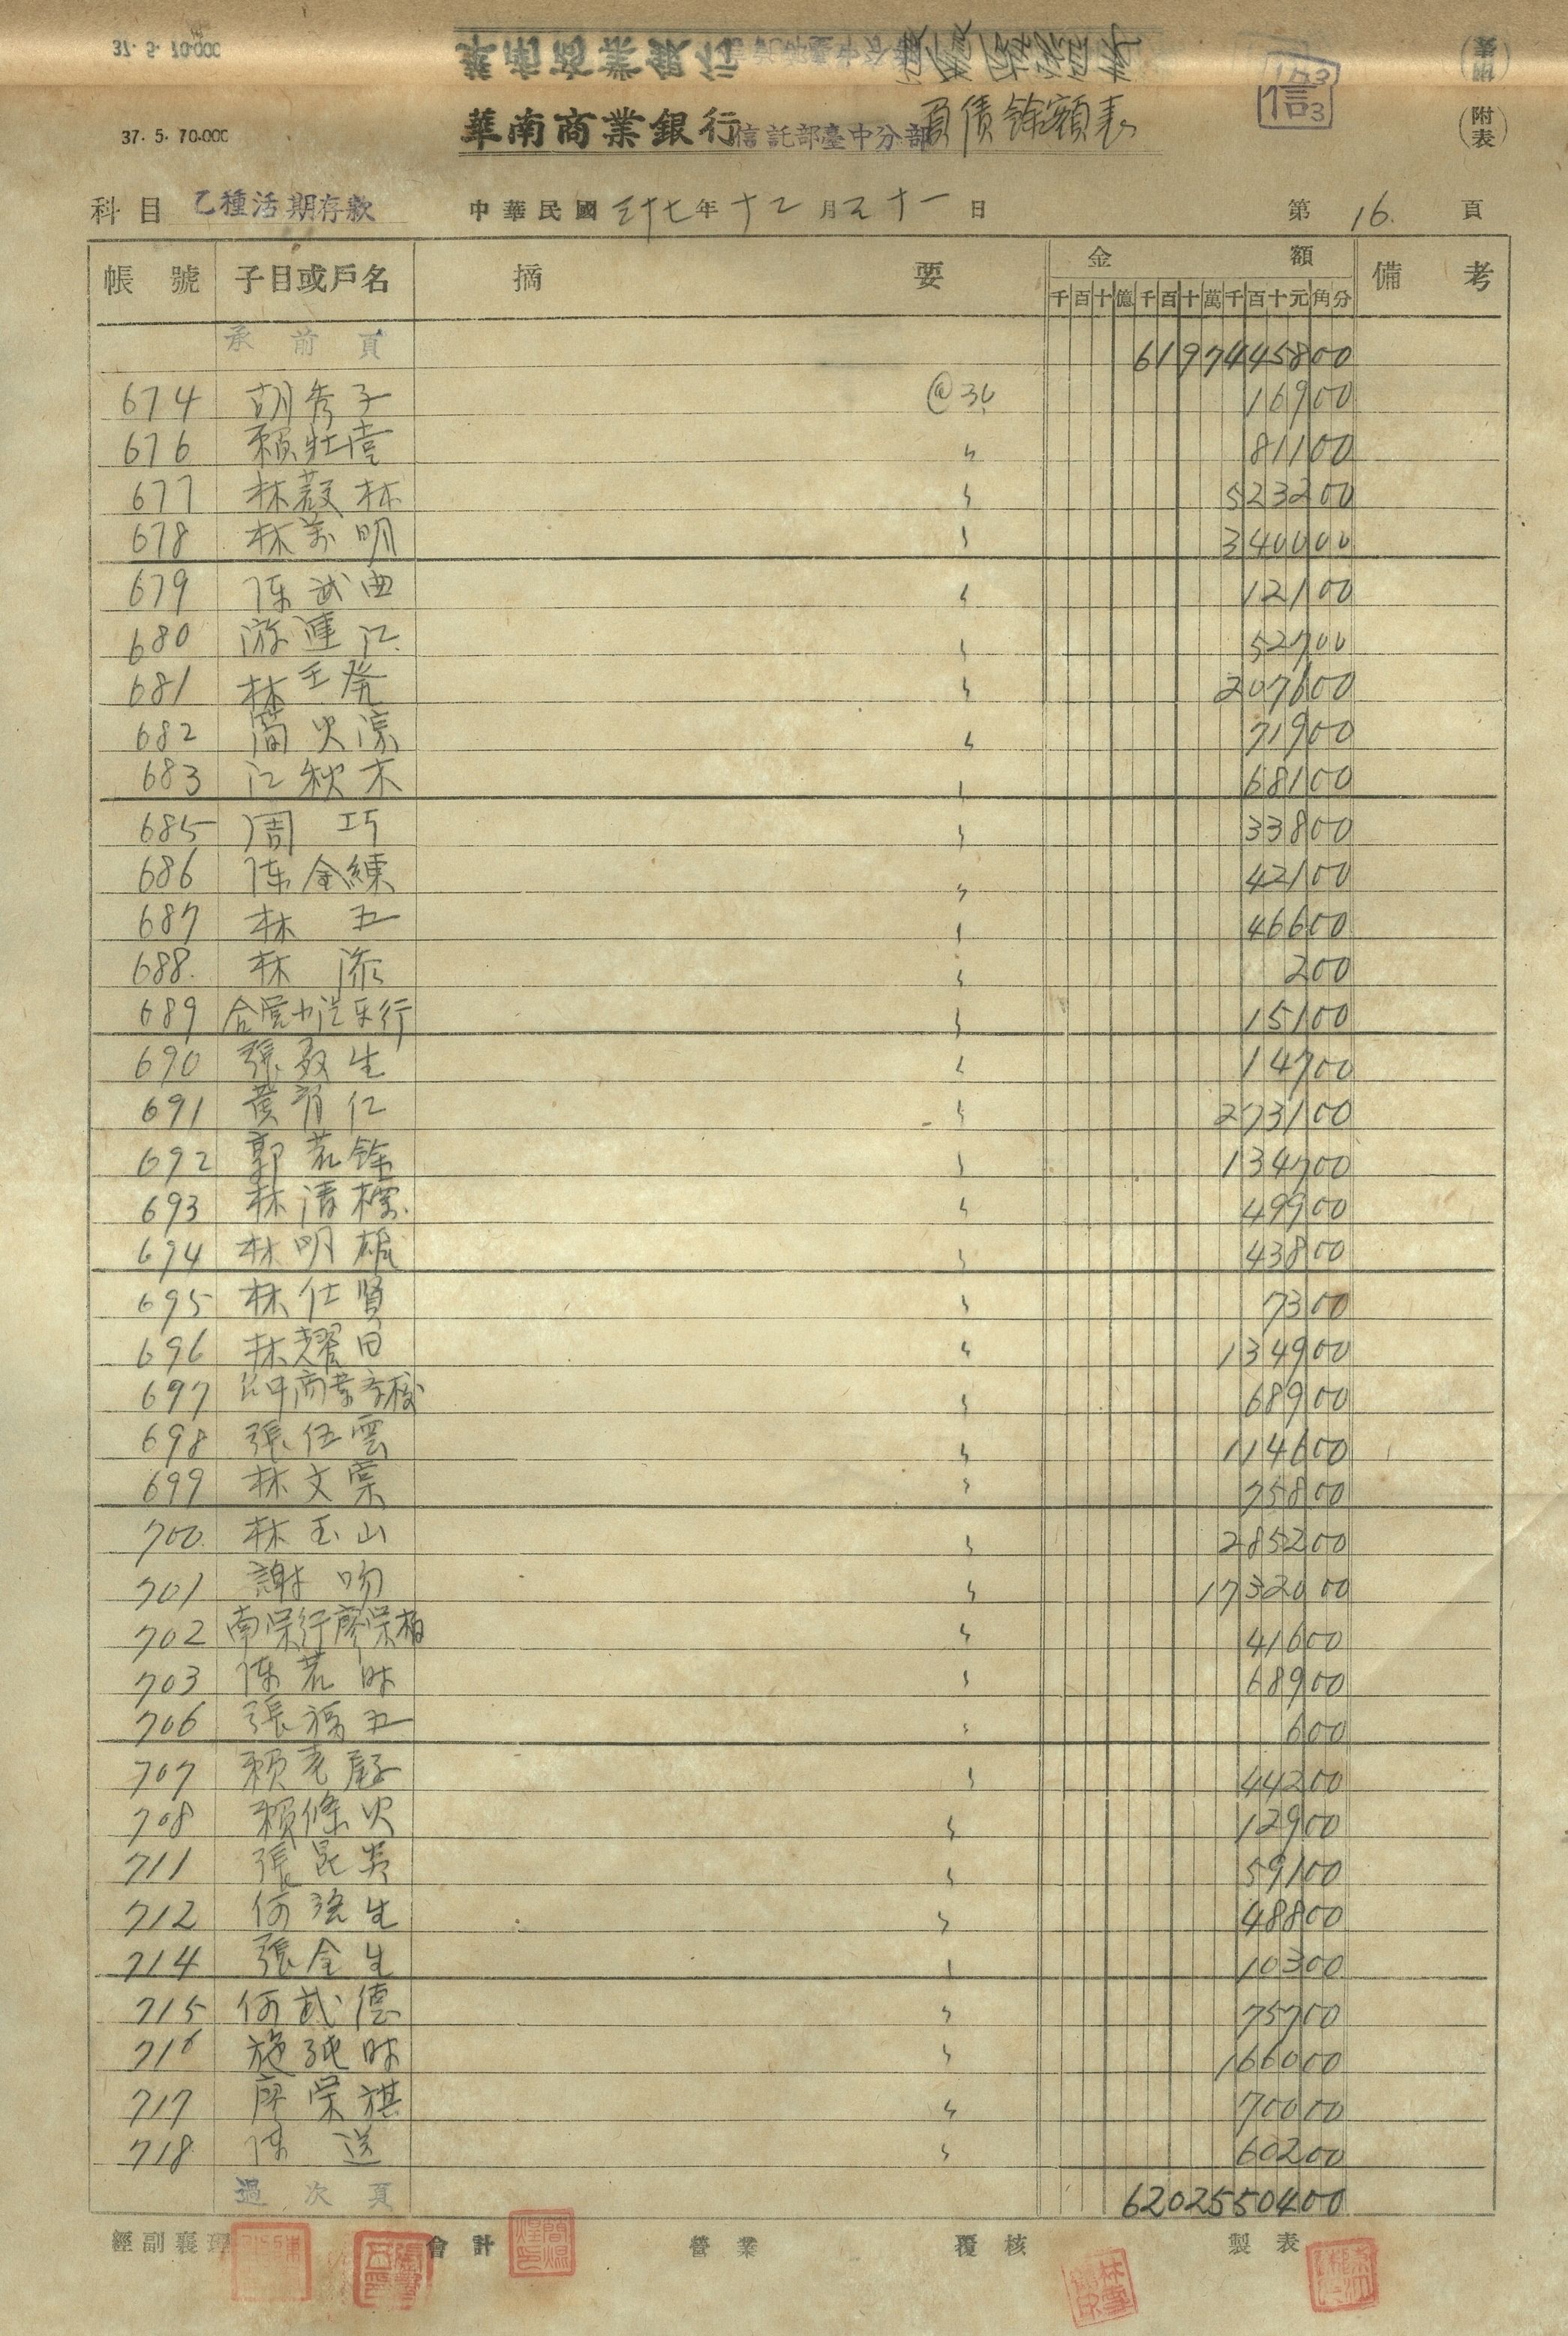 37. 5. 70.000
華南商業銀行信託部臺中分部負債餘額表
信3
(附表)
科目 乙種活期存款 中華民國三十七年十二月三十一日 第16.頁
帳號 子目或戶名 摘要 金額 備考
千百十億千百十萬千百十元角分
承前頁 6197445800
674 胡秀子 @36 16900
676 賴壯喜 〃 81100
677 林榖林 〃 523200
678 林萬明 〃 340000
679 陳武曲 〃 12100
680 游連江 〃 52700
681 林王發 〃 207600
682 簡火涼 〃 71900
683 江秋木 〃 68100
685 周巧 〃 33800
686 陳金練 〃 42100
687 林五 〃 46600
688. 林添 〃 200
689 〃 15100
690 張生 〃 14700
691 黃仁 〃 273100
692 郭荒餘 〃 134700
693 林清標 〃 49900
694 林明雄 〃 43800
695 林仕賢 〃 7300
696 林耀田 〃 134900
697 台中商業學校 〃 68900
698 張伍雲 〃 114600
699 林文棠 〃 75800
700. 林玉山 〃 285200
701 謝吻 〃 1732000
702 南榮行廖榮柏 〃 41600
703 陳荒時 〃 68900
706 張福五 〃 600
707 賴老 〃 44200
708 賴條火 〃 12900
711 張昆 〃 59100
712 何生 〃 48800
714 張金生 〃 10300
715 何武德 〃 75700
716 施純時 〃 166000
717 廖榮祺 〃 70000
718 陳送 〃 60200
過次頁 6202550400
經副襄理 會計 營業 覆核 製表